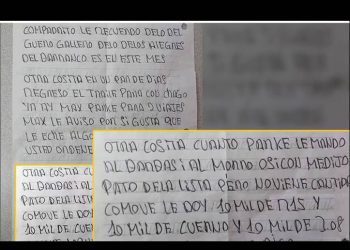 COMPADRITO LE RECUERDO DELO DEL
GUERO GALLERO DELO DELOS ALEGRES
DEL BARRANCO ES EN ESTE MES
OTRA COSITA EN UN PAR DE DIAS
REGRESO EL TRAILE PARA CON CHAGO
YA NY MAX PARKE PARA 2 VIAJES
MAX LE AVISO POR SI GUSTA QUE
LE ECHE ALGO
USTED ORDENE
OTRA COSITA
AL BARBAS I AL
PATO DELA LISTA
COMO VE LE DOY
10 MIL DE CUERNO
OTRA COSITA CUANTO PARKE LE MANDO
AL BARBAS I AL MORRO OSICON MEDITO
PATO DELA LISTA PERO NO VIENE CANTIDA
COMO VE LE DOY 10 MIL DE R15 Y
10 MIL DE CUERNO Y 10 MIL DE 308